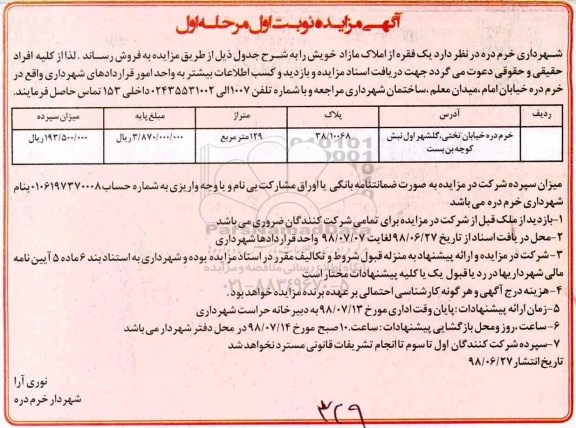 آگهی مزایده نوبت اول مرحله اول
شهرداری خرم دره در نظر دارد یک فقره از املاک مازاد خویش را به شرح جدول ذیل از طریق مزایده به فروش رساند . لذا از کلیه افراد
حقیقی و حقوقی دعوت می گردد جهت دریافت اسناد مزایده و بازدید و کسب اطلاعات بیشتر به واحد امور قراردادهای شهرداری واقع در
خرم دره خیابان امام ،میدان معلم ،ساختمان شهرداری مراجعه و با شماره تلفن ۱۰۰۷ الی ۰۲۴۳۵۵۳۱۰۰۲ داخلی ۱۵۳ تماس حاصل فرمایند.
ردیف آدرس پلاک متراژ مبلغ پایه میزان سپرده
خرم دره خیابان تختی، گلشهر اول نبش ۳۸/۱۰۰۶۸ ۱۲۹ متر مربع ۳/۸۷۰/۰۰۰/۰۰۰ ریال ۱۹۳/۵۰۰/۰۰۰ ریال
کوچه بن بست
میزان سپرده شرکت در مزایده به صورت ضمانتنامه بانکی یا اوراق مشارکت بی نام و یا وجه واریزی به شماره حساب ۰۱۰۶۱۹۷۳۷۰۰۰۸ بنام
شهرداری خرم دره می باشد
۱-بازدید از ملک قبل از شرکت در مزایده برای تمامی شرکت کنندگان ضروری می باشد
۲-محل دریافت اسناد از تاریخ ۹۸/۰۶/۲۷ لغایت ۹۸/۰۷/۰۷ واحد قراردادها شهرداری
۳-شرکت در مزایده و ارائه پیشنهاد به منزله قبول شروط و تکالیف مقرر در اسناد مزایده بوده و شهرداری به استناد بند ۶ ماده ۵ آیین نامه
مالی شهرداریها در رد یا قبول یک یا کلیه پیشنهادات مختار است
۴-هزینه درج آگهی و هر گونه کارشناسی احتمالی بر عهده برنده مزایده خواهد بود.
۵-زمان ارائه پیشنهادات :پایان وقت اداری مورخ ۹۸/۰۷/۱۳ به دبیرخانه حراست شهرداری
۶-ساعت ،روز و محل بازگشایی پیشنهادات : ساعت ۱۰ صبح مورخ ۹۸/۰۷/۱۴ در محل دفتر شهردار می باشد
۷-سپرده شرکت کنندگان اول تا سوم تا انجام تشریفات قانونی مسترد نخواهد شد
تاریخ انتشار ۹۸/۰۶/۲۷
نوری آرا
شهردار خرم دره
۳۲۹